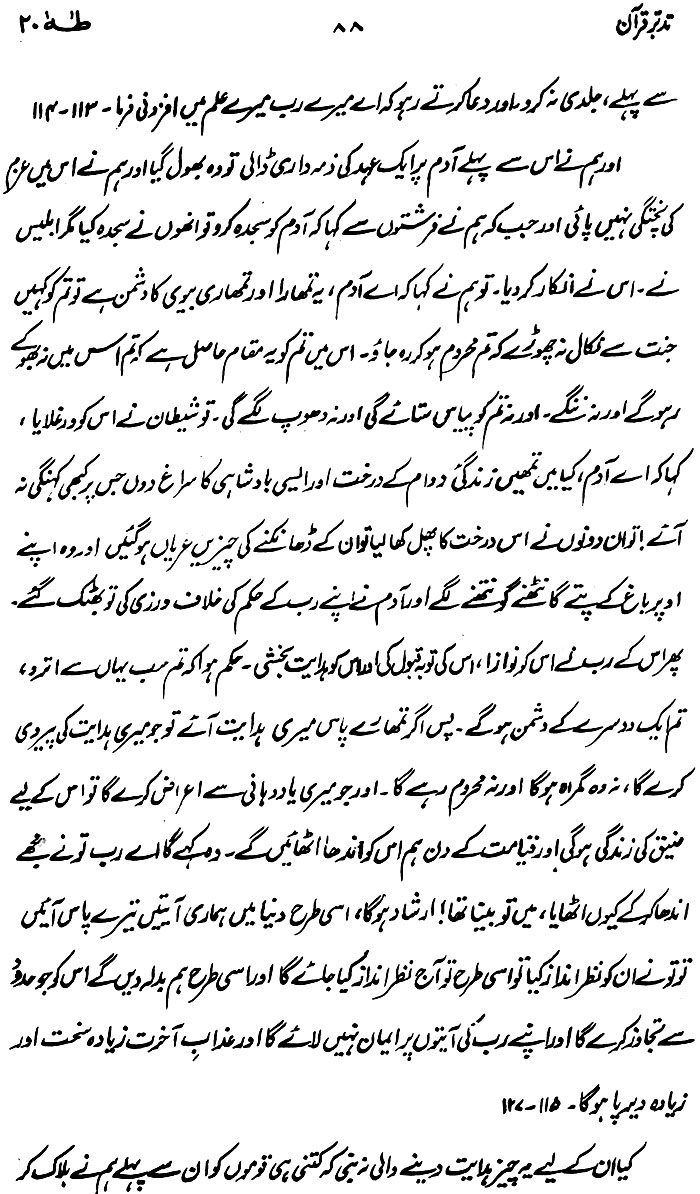 تدبر قرآن ۸۸ طٰهٰ ۲۰
سے پہلے، جلدی نہ کرو۔ اور دعا کرتے رہو کہ اے میرے رب میرے علم میں افزونی فرما۔ ۱۱۳-۱۱۴
اور ہم نے اس سے پہلے آدم پر ایک عہد کی ذمہ داری ڈالی تو وہ بھول گیا اور ہم نے اس میں عزم
کی پختگی نہیں پائی اور جب کہ ہم نے فرشتوں سے کہا کہ آدم کو سجدہ کرو تو انھوں نے سجدہ کیا مگر ابلیس
نے۔ اس نے انکار کر دیا۔ تو ہم نے کہا کہ اے آدم، یہ تمھارا اور تمھاری بیوی کا دشمن ہے تو تم کو کہیں
جنت سے نکال نہ چھوڑے کہ تم محروم ہو کر رہ جاؤ۔ اس میں تم کو یہ مقام حاصل ہے کہ تم اس میں نہ بھوکے
رہو گے اور نہ ننگے۔ اور نہ تم کو پیاس ستائے گی اور نہ دھوپ لگے گی۔ تو شیطان نے اس کو ورغلایا،
کہا کہ اے آدم، کیا میں تمھیں زندگیٔ دوام کے درخت اور ایسی بادشاہی کا سراغ دوں جس پر کبھی کہنگی نہ
آئے! تو ان دونوں نے اس درخت کا پھل کھا لیا تو ان کے ڈھانکنے کی چیزیں عریاں ہو گئیں اور وہ اپنے
اوپر باغ کے پتے گانٹھنے گونتھنے لگے اور آدم نے اپنے رب کے حکم کی خلاف ورزی کی تو بھٹک گئے۔
پھر اس کے رب نے اس کو نوازا، اس کی توبہ قبول کی اور اس کو ہدایت بخشی۔ حکم ہوا کہ تم سب یہاں سے اترو،
تم ایک دوسرے کے دشمن ہو گے۔ پس اگر تمھارے پاس میری ہدایت آئے تو جو میری ہدایت کی پیروی
کرے گا، نہ وہ گمراہ ہو گا اور نہ محروم رہے گا۔ اور جو میری یاددہانی سے اعراض کرے گا تو اس کے لیے
ضیق کی زندگی ہو گی اور قیامت کے دن ہم اس کو اندھا اٹھائیں گے۔ وہ کہے گا اے رب تو نے مجھے
اندھا کر کے کیوں اٹھایا، میں تو بینا تھا! ارشاد ہوگا، اسی طرح دنیا میں ہماری آیتیں تیرے پاس آئیں
تو تو نے ان کو نظر انداز کیا تو اسی طرح تو آج نظر انداز کیا جائے گا اور اسی طرح ہم بدلہ دیں گے اس کو جو حدود
سے تجاوز کرے گا اور اپنے رب کی آیتوں پر ایمان نہیں لائے گا اور عذابِ آخرت زیادہ سخت اور
زیادہ دیرپا ہو گا۔ ۱۱۵-۱۲۷
کیا ان کے لیے یہ چیز ہدایت دینے والی نہ بنی کہ کتنی ہی قوموں کو ان سے پہلے ہم نے ہلاک کر